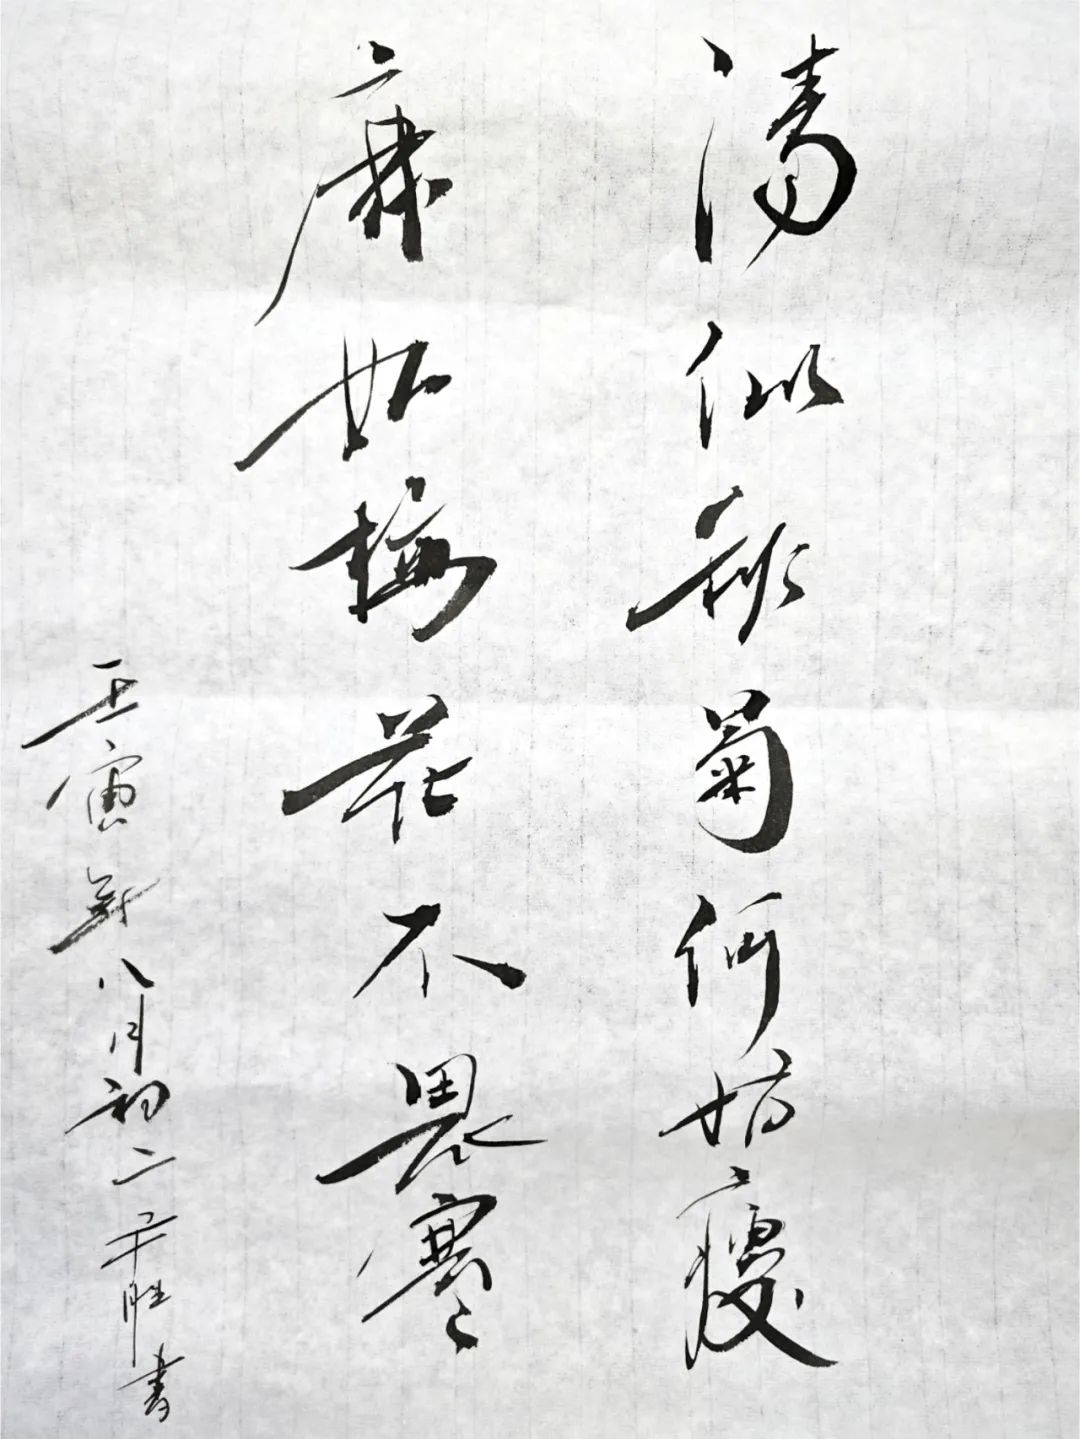 清似秋菊何妨瘦
廉如梅花不畏寒
壬寅年八月初二于胜书